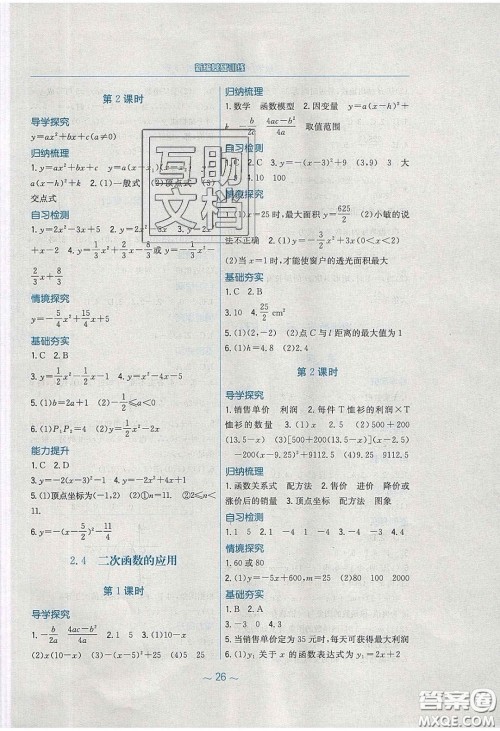 新编基础训练
第2课时
导学探究
y=ax²+bx+c(a≠0)
归纳梳理
1.y=ax²+bx+c y=a(x-x₁)
a(x-h)²+k 2.(1)一般式 (2)顶点式 (3)
交点式
自习检测
情境探究
基础夯实
1.C 2.B
3.y=1/2x²-1/2x-1 4.y=x²-4x-5
5.(1)b=2a+1 (2)a=-1
能力提升
1.C 2.D
3.y=-2(x-3)²-1 4.y=2x²-4x
5.(1)顶点坐标为(-2,1) (2)①n=11. ②2≤
n≤11.
6.y=-(x-5/2)²-11/4
2.4 二次函数的应用
第1课时
导学探究
1.-b/2a (4ac-b²)/4a 2.1 5 3.(1)10-x
(2)x(10-x) (3)-(x-5)²+25 (4)5 25
归纳梳理
1.数学 函数模型 2.因变量 y=a(x-h)²+
k -b/2a (4ac-b²)/4a 取值范围
自习检测
1.C 2.C 3.y=-(x-3)²+9 (3,9) 3 大
情境探究
1.(1)x=25时,最大面积y=625/2 (2)小敏的说
法不正确 2.(1)y=-3/2x²+3x(0<x<2)
(2)当x=1时,才能使窗户的透光面积最大
基础夯实
1.C 2.B
3.10 4.25/2 cm²
5.(1)(2,-2) (2)点C与l距离的最大值为1
6.(1)h=4.8 (2)2.4
第2课时
导学探究
1.销售单价 利润 2.每件T恤衫的利润×T
恤衫的数量 3.(1)x (2)500+200
(13.5-x) (3)[500+200(13.5-x)](x-2.5)
-200(x-9.25)²+9112.5 (4)9.25 9112.5
归纳梳理
1.函数关系式 配方法 2.售价 进价 降价或
涨价后的销量 3.顶点坐标 配方法 图象
自习检测
1.4 2.5 1 -4 4 1 -4 3.-4 4.4
情境探究
1.60或80
2.(1)y=-5x+600,m=25 (2)略
基础夯实
1.B 2.A
3.-3 0 4.3
5.当销售单价定为35元时,每天可获得最大利润
6.(1)y₁关于x的函数表达式为y₁=2x+2
~26~
互助
文档
答案圈
MXQE.COM